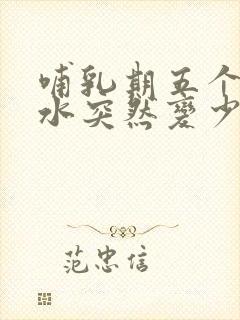 哺乳期五个
水突然变少
范忠信